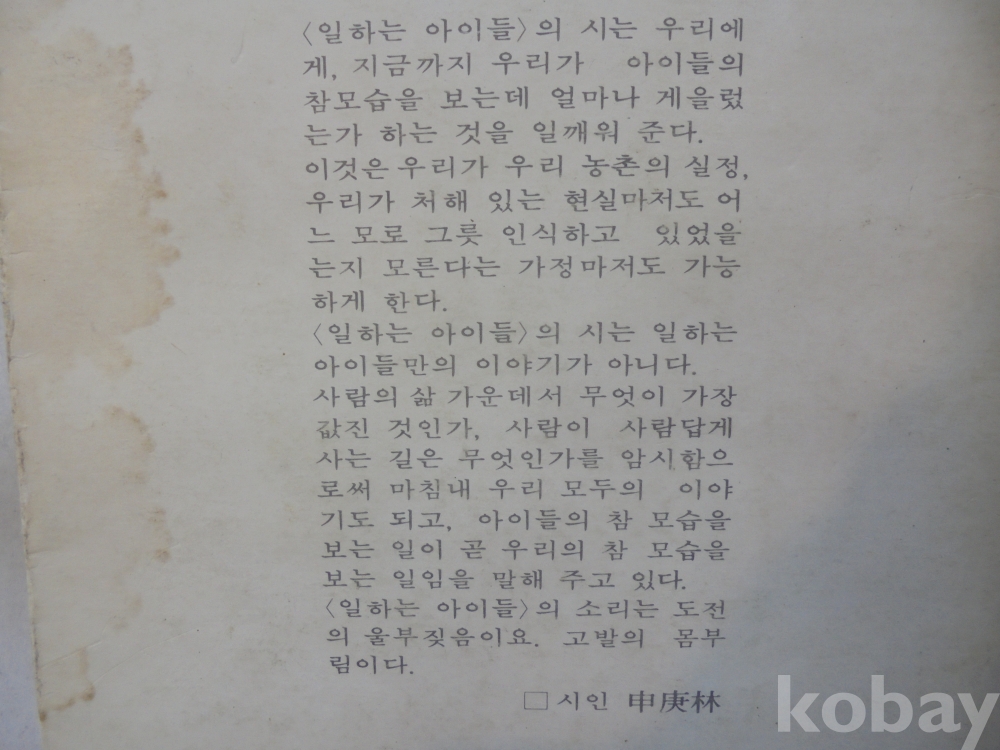 〈일하는 아이들〉의 시는 우리에
게, 지금까지 우리가 아이들의
참모습을 보는데 얼마나 게을렀
는가 하는 것을 일깨워 준다.
이것은 우리가 우리 농촌의 실정,
우리가 처해 있는 현실마저도 어
느 모로 그릇 인식하고 있었을
는지 모른다는 가정마저도 가능
하게 한다.
〈일하는 아이들〉의 시는 일하는
아이들만의 이야기가 아니다.
사람의 삶 가운데서 무엇이 가장
값진 것인가, 사람이 사람답게
사는 길은 무엇인가를 암시함으
로써 마침내 우리 모두의 이야
기도 되고, 아이들의 참 모습을
보는 일이 곧 우리의 참 모습을
보는 일임을 말해 주고 있다.
〈일하는 아이들〉의 소리는 도전
의 울부짖음이요. 고발의 몸부
림이다.
□ 시인 申庚林
kobay